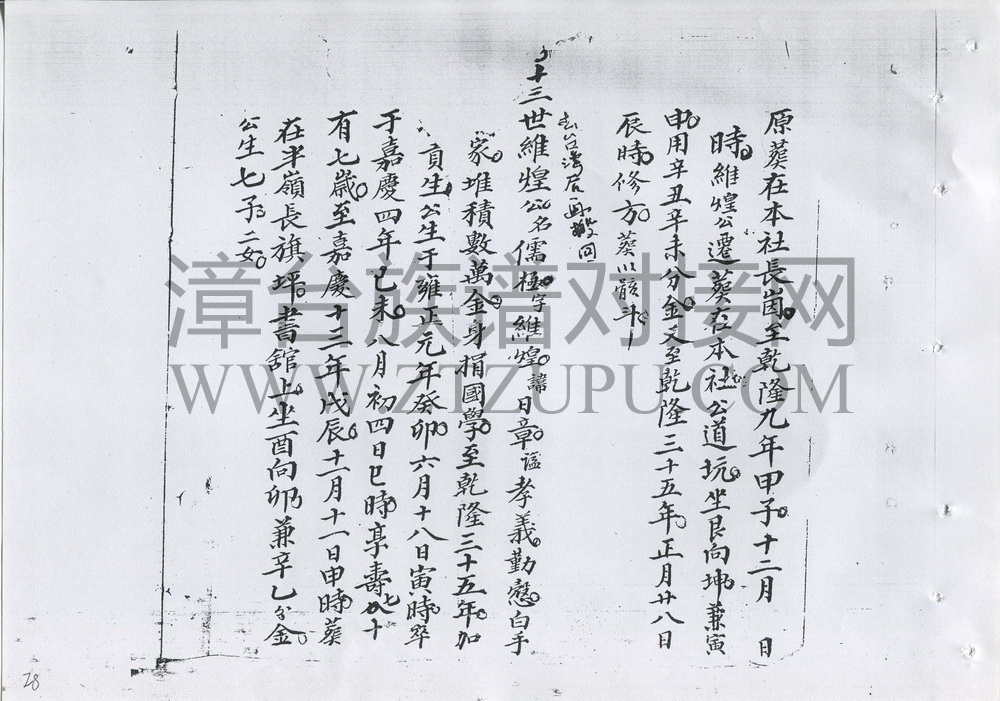 原葬在本社長崗至乾隆九年甲子十二月 日
時維煌公遷葬在本社公道坑坐艮向坤兼寅
申用辛丑辛未分金又至乾隆三十五年正月廿八日
辰時修方葬以骸斗
去台灣居再搬回
十三世維煌公名儒極字維煌諱日章謚孝義勤慇白手
家堆積數萬金身捐國學至乾隆三十五年加
貢生公生于雍正元年癸卯六月十八日寅時卒
于嘉慶四年己未八月初四日巳時享壽七十
有七歲至嘉慶十三年戊辰十一月十一日申時葬
在半嶺長旗坪書舘上坐酉向卯兼辛乙分金
公生七子二女
漳台族谱对接网
WWW.ZTZUPU.COM
28